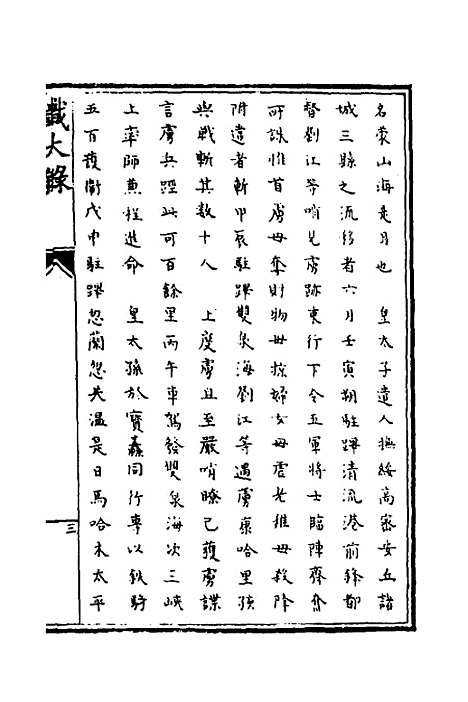 名蒙山海是月也　皇太子遣人撫綏高密安丘諸
城三縣之流移者六月壬寅朔駐蹕清流港前鋒都
督劉江等哨見虜跡東行下令五軍將士臨陣齊奮
所誅惟首虜毋奪財物毋掠婦女毋虐老稚毋殺降
附違者斬甲辰駐蹕雙泉海劉江等遇虜康哈里孩
與戰斬其数十人　上度虜且至嚴哨瞭己獲虜諜
言虜兵踁此可百餘里丙午車駕發雙泉海次三峽
上率師兼程進命　皇太孫於寳纛同行專以鉄騎
五百䕶衛戊申駐蹕忽蘭忽失温是日馬哈木太平
識大錄
三